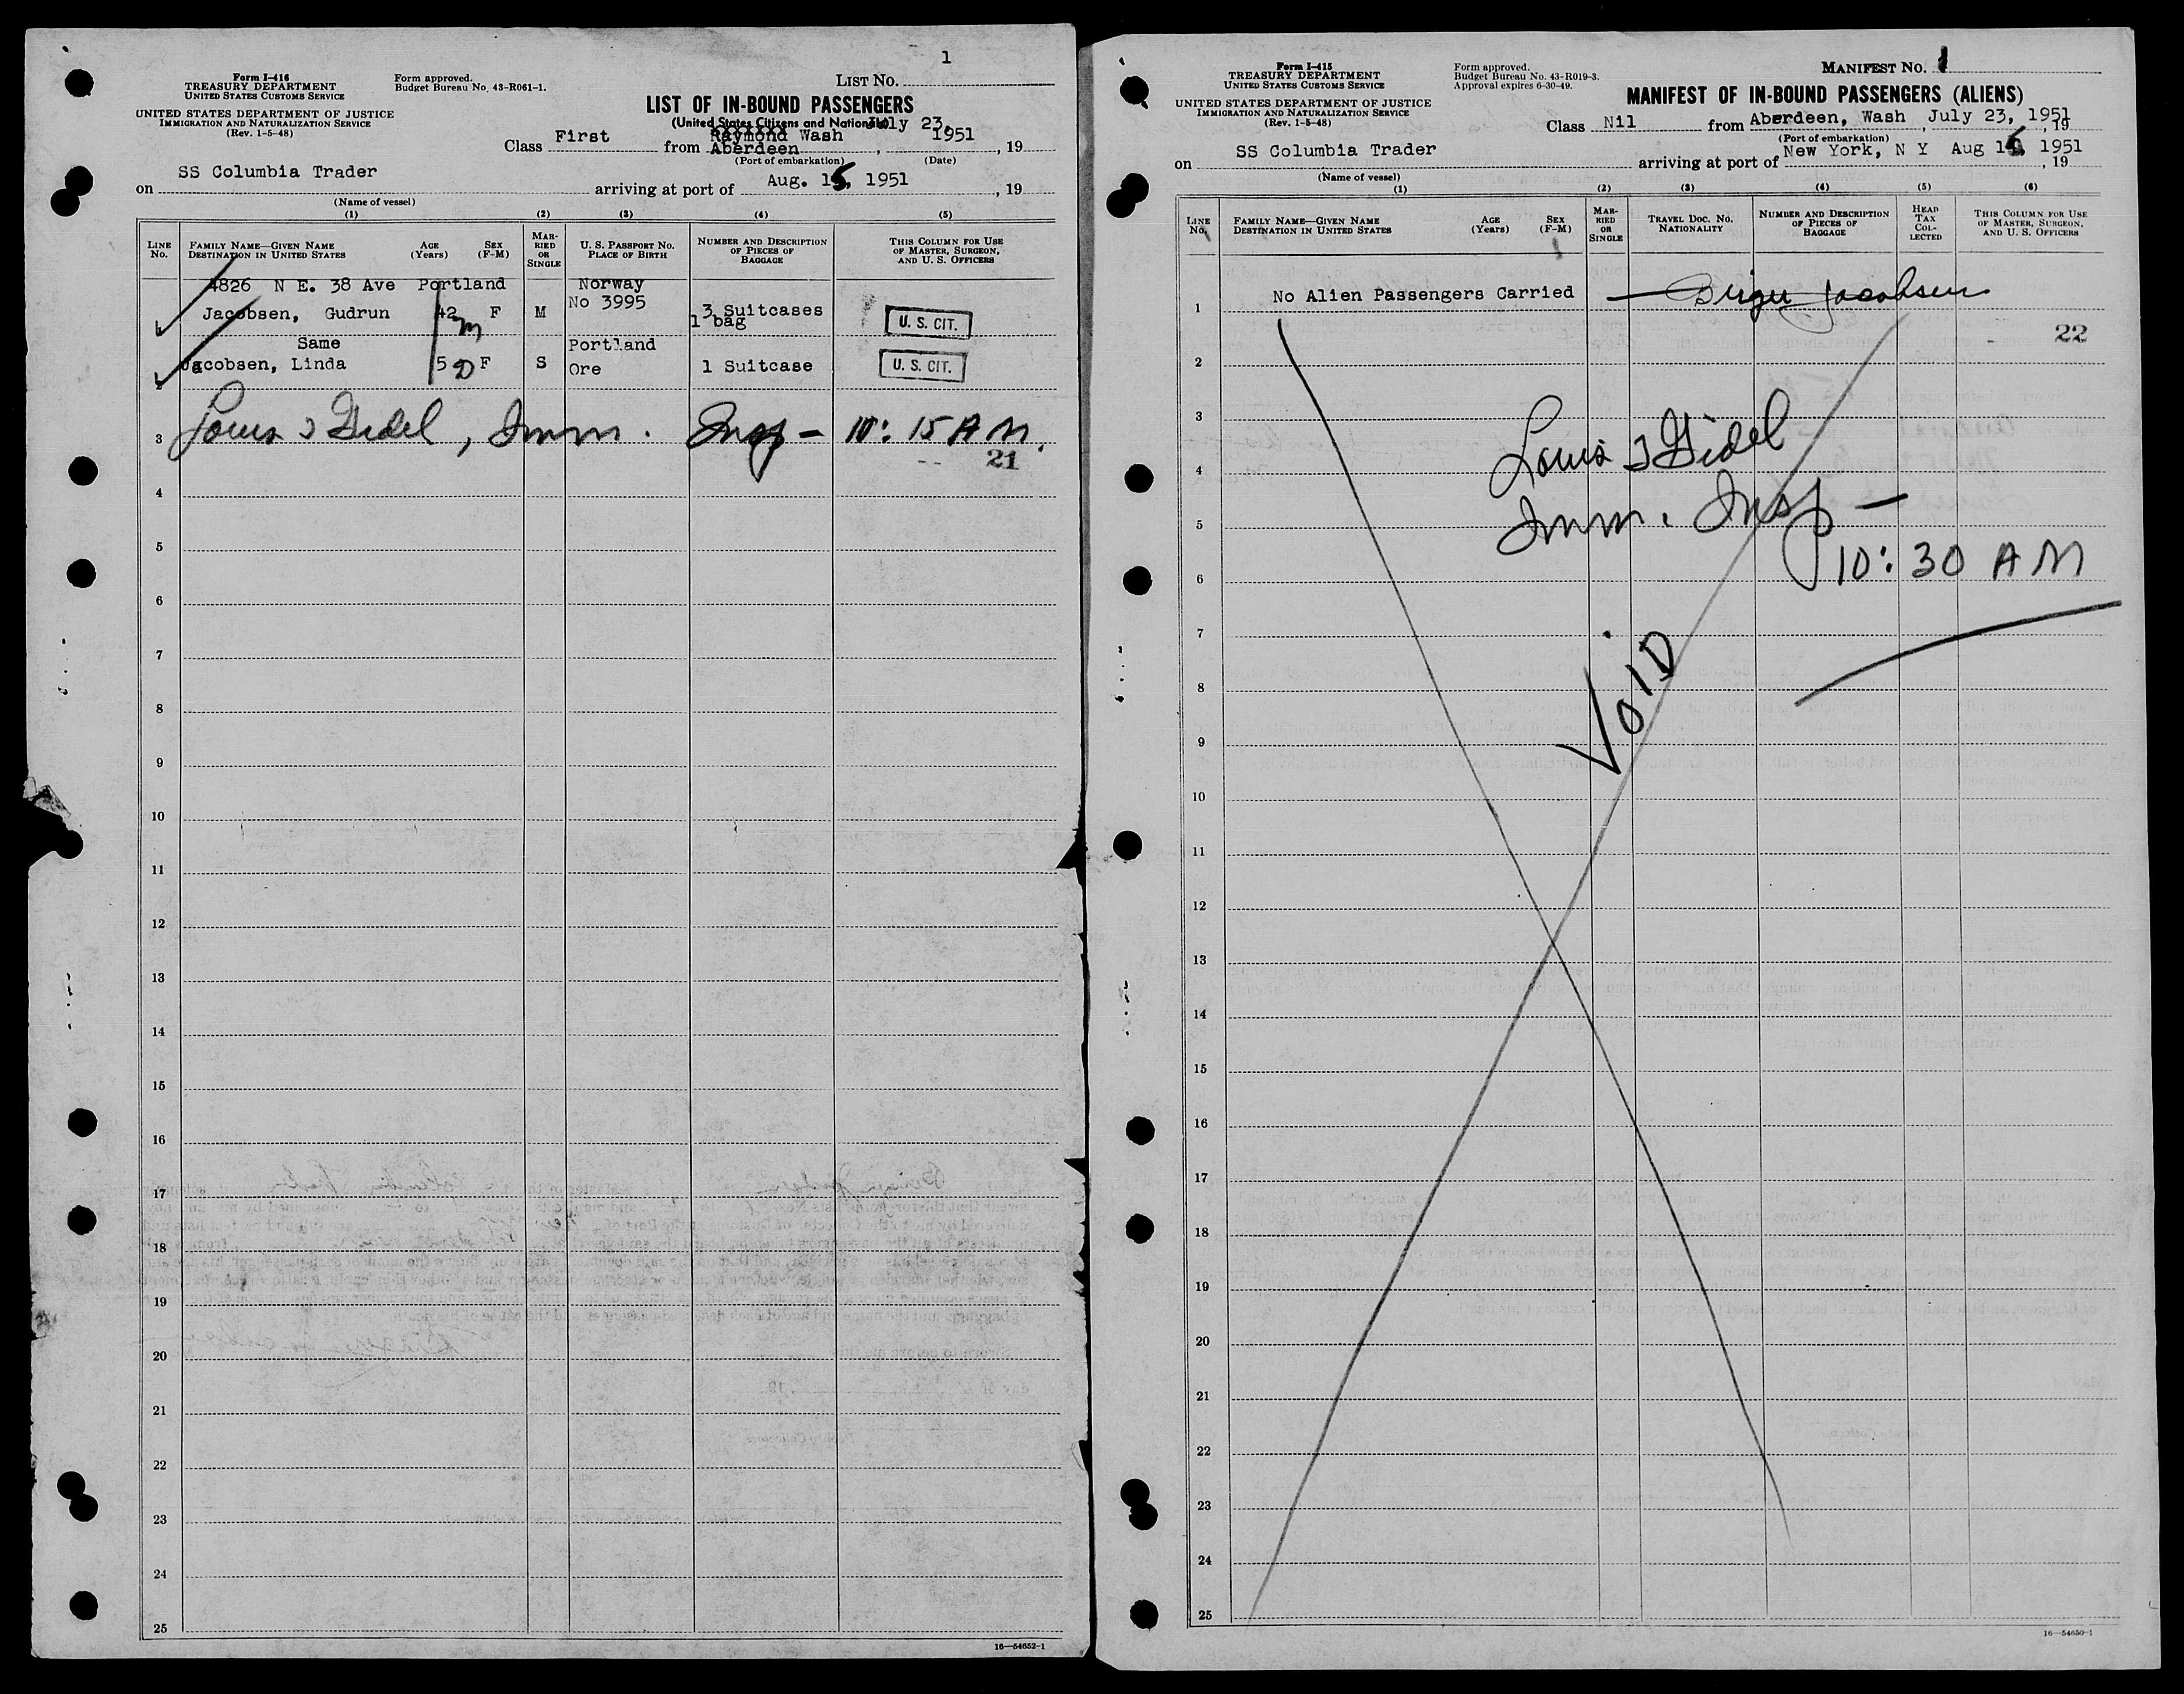 1
Form I-416
TREASURY DEPARTMENT
UNITED STATES CUSTOMS SERVICE
UNITED STATES DEPARTMENT OF JUSTICE
IMMIGRATION AND NATURALIZATION SERVICE
(Rev. 1-5-48)
Form approved.
Budget Bureau No. 43-R061-1.
LIST NO.
LIST OF IN-BOUND PASSENGERS
(United States Citizens and Nationals)
Class First from Raymond Wash Aberdeen, July 23, 1951, 19
(Port of embarkation) (Date)
on SS Columbia Trader arriving at port of Aug. 15, 1951, 19
(Name of vessel)
(1) (2) (3) (4) (5)
LINE No. FAMILY NAME—GIVEN NAME DESTINATION IN UNITED STATES AGE (Years) SEX (F-M) MARRIED OR SINGLE U. S. PASSPORT NO. PLACE OF BIRTH NUMBER AND DESCRIPTION OF PIECES OF BAGGAGE THIS COLUMN FOR USE OF MASTER, SURGEON, AND U. S. OFFICERS
4826 N E. 38 Ave Portland Norway
1 Jacobsen, Gudrun 42 m F M No 3995 3 Suitcases 1 bag U. S. CIT.
Same Portland
2 Jacobsen, Linda 5 D F S Ore 1 Suitcase U. S. CIT.
3 Louis J Gidel, Imm. Insp - 10:15 AM.
21
4
5
6
7
8
9
10
11
12
13
14
15
16
17
18
19
20
21
22
23
24
25
16—54652-1
Form I-415
TREASURY DEPARTMENT
UNITED STATES CUSTOMS SERVICE
UNITED STATES DEPARTMENT OF JUSTICE
IMMIGRATION AND NATURALIZATION SERVICE
(Rev. 1-5-48)
Form approved.
Budget Bureau No. 43-R019-3.
Approval expires 6-30-49.
MANIFEST NO. 1
MANIFEST OF IN-BOUND PASSENGERS (ALIENS)
Class Nil from Aberdeen, Wash, July 23, 1951, 19
(Port of embarkation)
on SS Columbia Trader arriving at port of New York, N Y Aug 15, 1951, 19
(Name of vessel)
(1) (2) (3) (4) (5) (6)
LINE No. FAMILY NAME—GIVEN NAME DESTINATION IN UNITED STATES AGE (Years) SEX (F-M) MARRIED OR SINGLE TRAVEL DOC. NO. NATIONALITY NUMBER AND DESCRIPTION OF PIECES OF BAGGAGE HEAD TAX COLLECTED THIS COLUMN FOR USE OF MASTER, SURGEON, AND U. S. OFFICERS
1 No Alien Passengers Carried — Birger Jacobsen
22
2
3
Louis J Gidel
4
Imm. Insp -
5
10:30 AM
6
7
VOID
8
9
10
11
12
13
14
15
16
17
18
19
20
21
22
23
24
25
16—54650-1